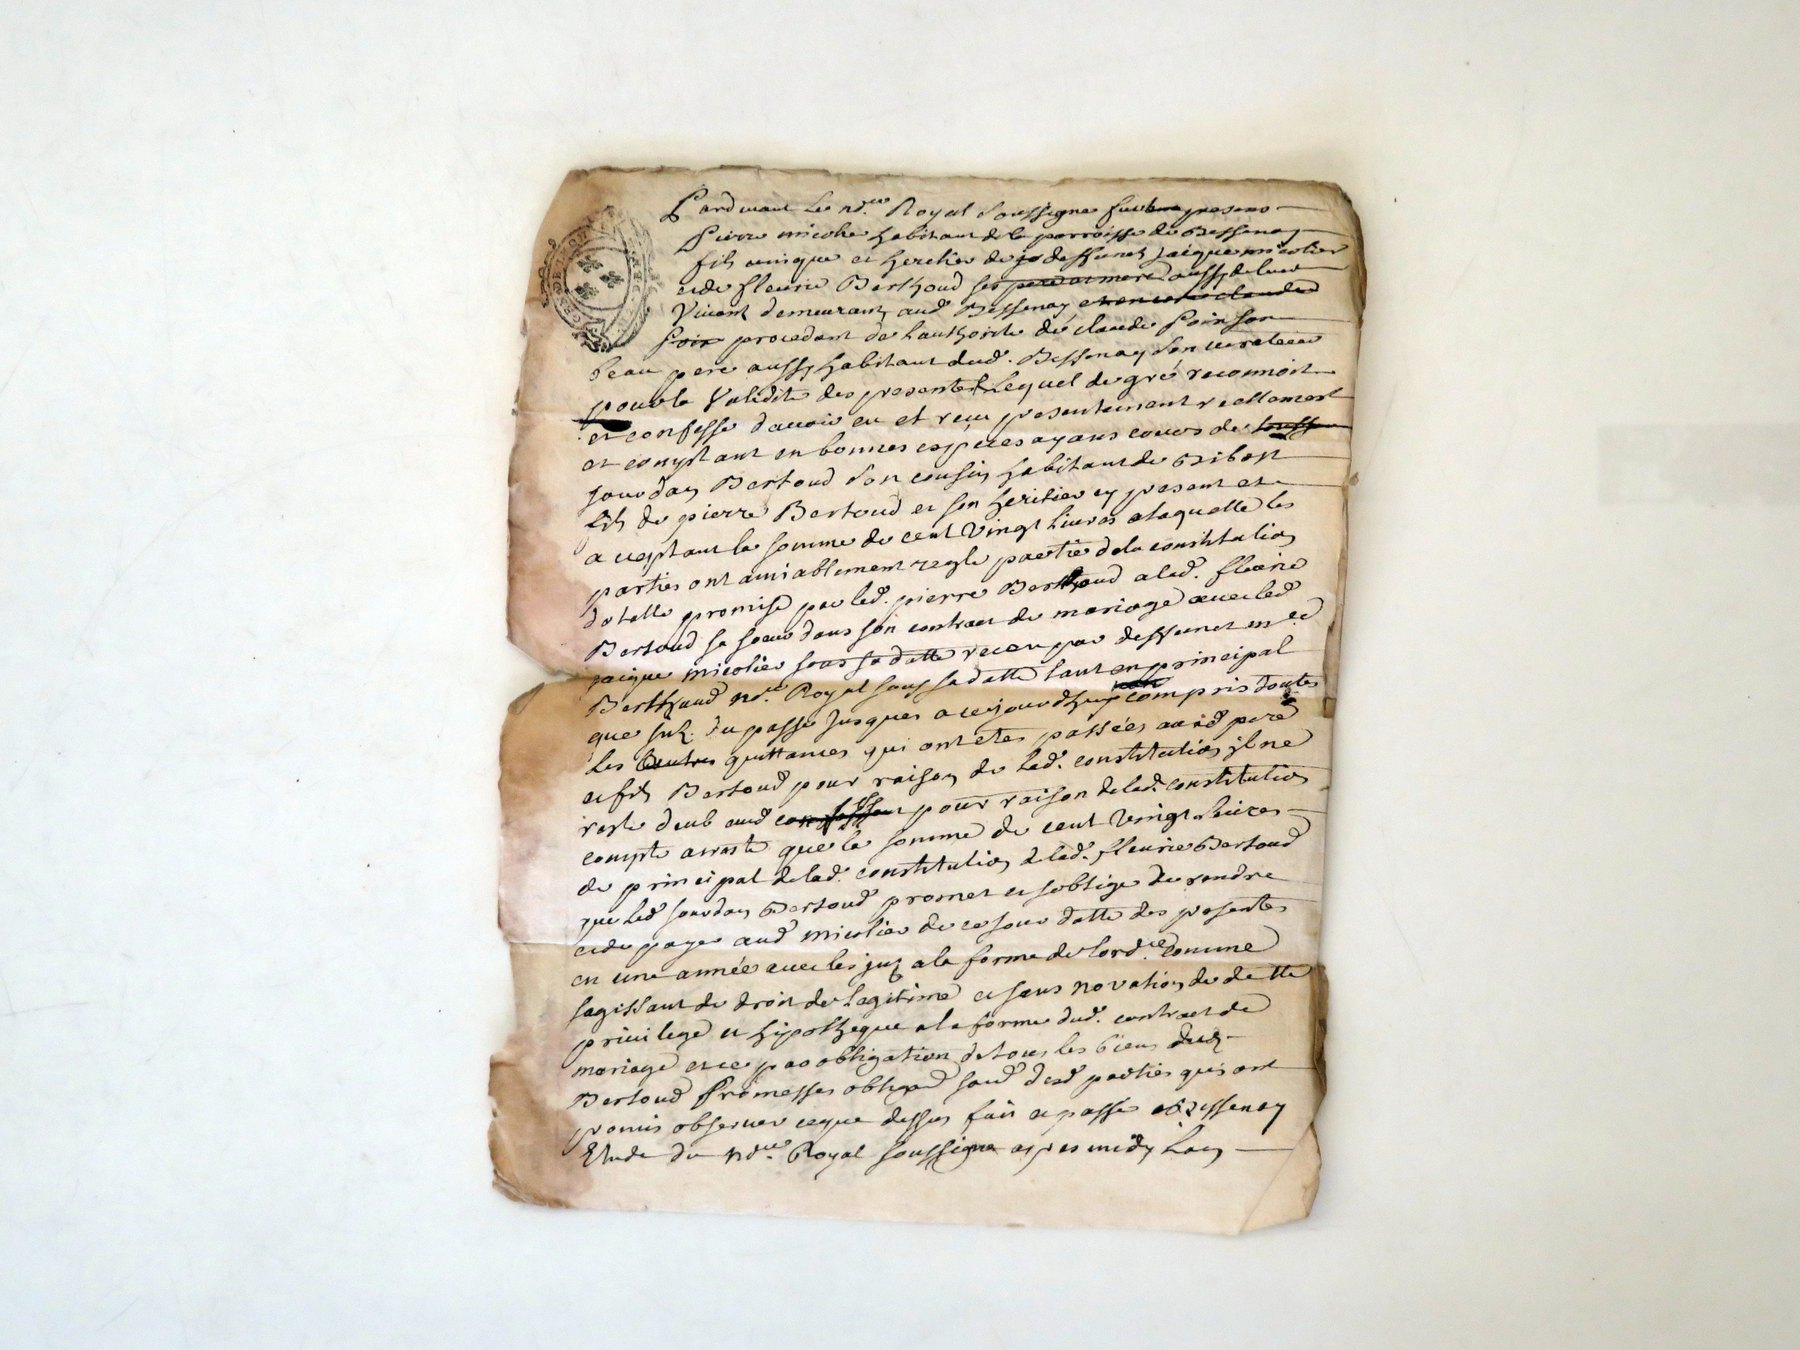 Pardevant le no.re Royal soussigne fut presens
Pierre micolier habitant de la parroisse de Bessenay
fils unique et heretier de deffunct Jaique micolier
et de fleurie Berthoud ses pere et mere aussy de leur
Vivant demeurants aud Bessenay et encore claude
soir procedant de lauthorite de claude soir son
beau pere aussy habitant dud. Bessenay
pour la Validite des presentes Lequel de gré reconnoit
et confesse davoir eu et receu presentement reellement
et comptant en bonnes espèces ayans cours de
Jourdan Bertoud son cousin habitant de Bibost
fils de pierre Bertoud et son heritier cy present et
acceptant la somme de cent Vingt Livres a laquelle les
parties ont amiablement regle partie de la constitution
dotalle promise par led. pierre Berthoud a lad. fleurie
Bertoud sa soeur dans son contract de mariage avec led
jaique micolier sous sa datte receu par deffunct me
Berthaud no.re Royal sous sa datte tant en principal
que Int. du passe Jusques a cejourdhuy compris doutes
Les autres quittances qui ont etes passées aud pere
et fils Bertoud pour raison de lad. constitution il ne
reste deub aud pour raison de lad. constitution
compte arreste que la somme de cent Vingt Livres
de principal de lad. constitution de lad. fleurie Bertoud
que led Jourdan Bertoud promet et soblige de rendre
et de payer aud micolier de ce jour datte des presentes
en une année avec les int a la forme de lord.ce comme
sagissant de droit de legitime et sans novation de dette
privilege et hipotheque a la forme dud. contract de
mariage et ce par obligation de tous les biens dud.
Bertoud Promesses oblig. soud desd parties qui ont
promis observer ce que dessus fait et passe a Bessenay
Etude du no.re Royal soussigne apres midy Lan